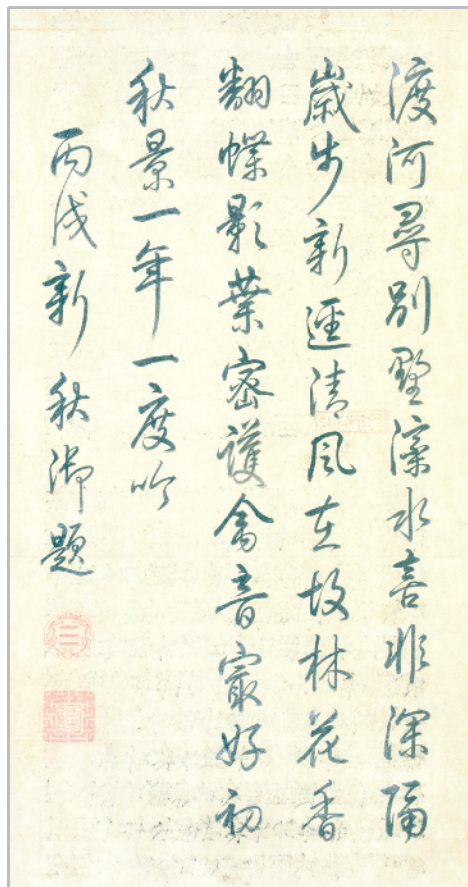 渡河尋别墅潦水喜非深隔
歲步新逕清風在故林花香
翻蝶影葉密護禽音寂好初
秋景一年一度吟
丙戌新秋御題
三